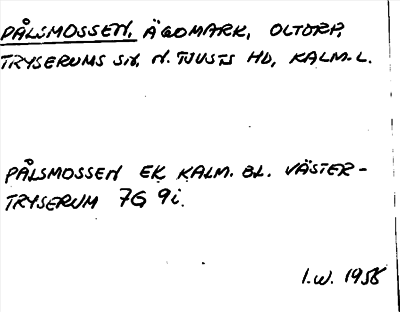 PÅLSMOSSEN, ÄGOMARK, OLTORP,
TRYSERUMS SN, N. TJUSTS HD, KALM. L.
PÅLSMOSSEN EK KALM. BL. VÄSTER-
TRYSERUM 7G 9i.
I.W. 1958